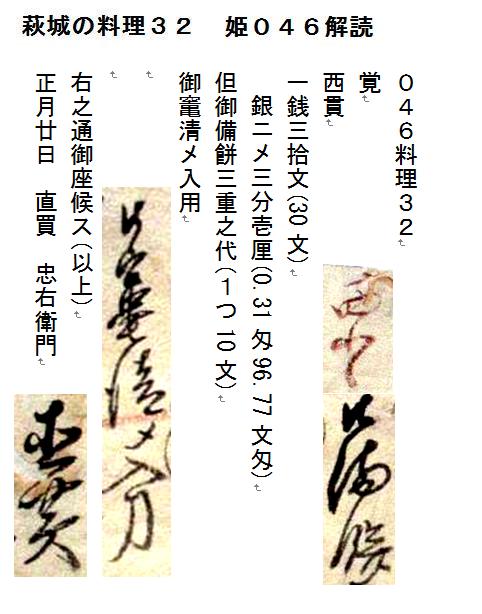 萩城の料理３２　姫０４６解読
０４６料理３２
覚
西貫
一銭三拾文(30文)
銀ニメ三分壱厘(0.31匁96.77文匁)
但御備餅三重之代(1つ10文)
御竈清メ入用
右之通御座候ス(以上)
正月廿日　直買　忠右衛門
御竈清メ入用
直買